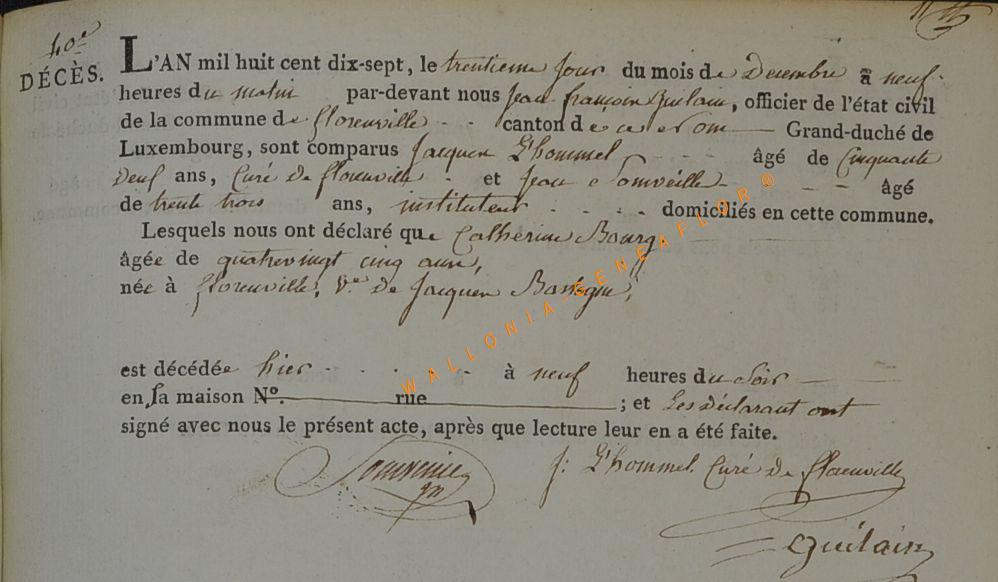 40e
DÉCÈS.
L'AN mil huit cent dix-sept, le trentieme jour du mois de Decembre à neuf
heures du matin par-devant nous Jean françois Guilain, officier de l'état civil
de la commune de florenville canton de ce nom Grand-duché de
Luxembourg, sont comparus Jacques L'hommel âgé de Cinquante
neuf ans, Curé de florenville et Jean âgé
de trente trois ans, instituteur domiciliés en cette commune.
Lesquels nous ont déclaré que Catherine Bourg
âgée de quatrevingt cinq ans,
née à florenville, Ve de Jacques
est décédée hier à neuf heures du Soir
en sa maison No. rue ; et Les déclarant ont
signé avec nous le présent acte, après que lecture leur en a été faite.
J: L'hommel Curé de florenville
Guilain
WALLONIA-GENEAFLOR©